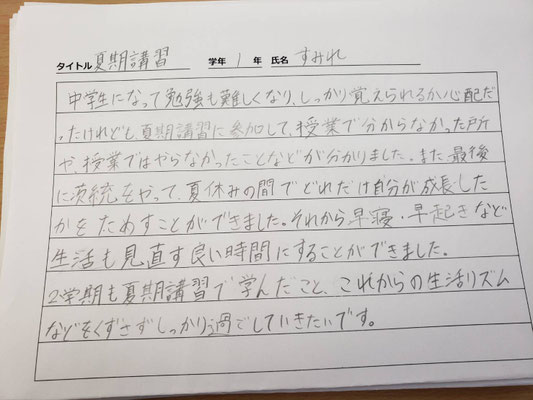 タイトル 夏期講習 学年 1 年 氏名 すみれ
中学生になって勉強も難しくなり、しっかり覚えられるか心配だ
ったけれども、夏期講習に参加して、授業で分からなかった所
や、授業ではやらなかったことなどが分かりました。また、最後
に をやって、夏休みの間でどれだけ自分が成長した
かをためすことができました。それから早寝・早起きなど
生活も見直す良い時間にすることができました。
2学期も夏期講習で学んだこと、これからの生活リズム
などをくずさずしっかり過ごしていきたいです。